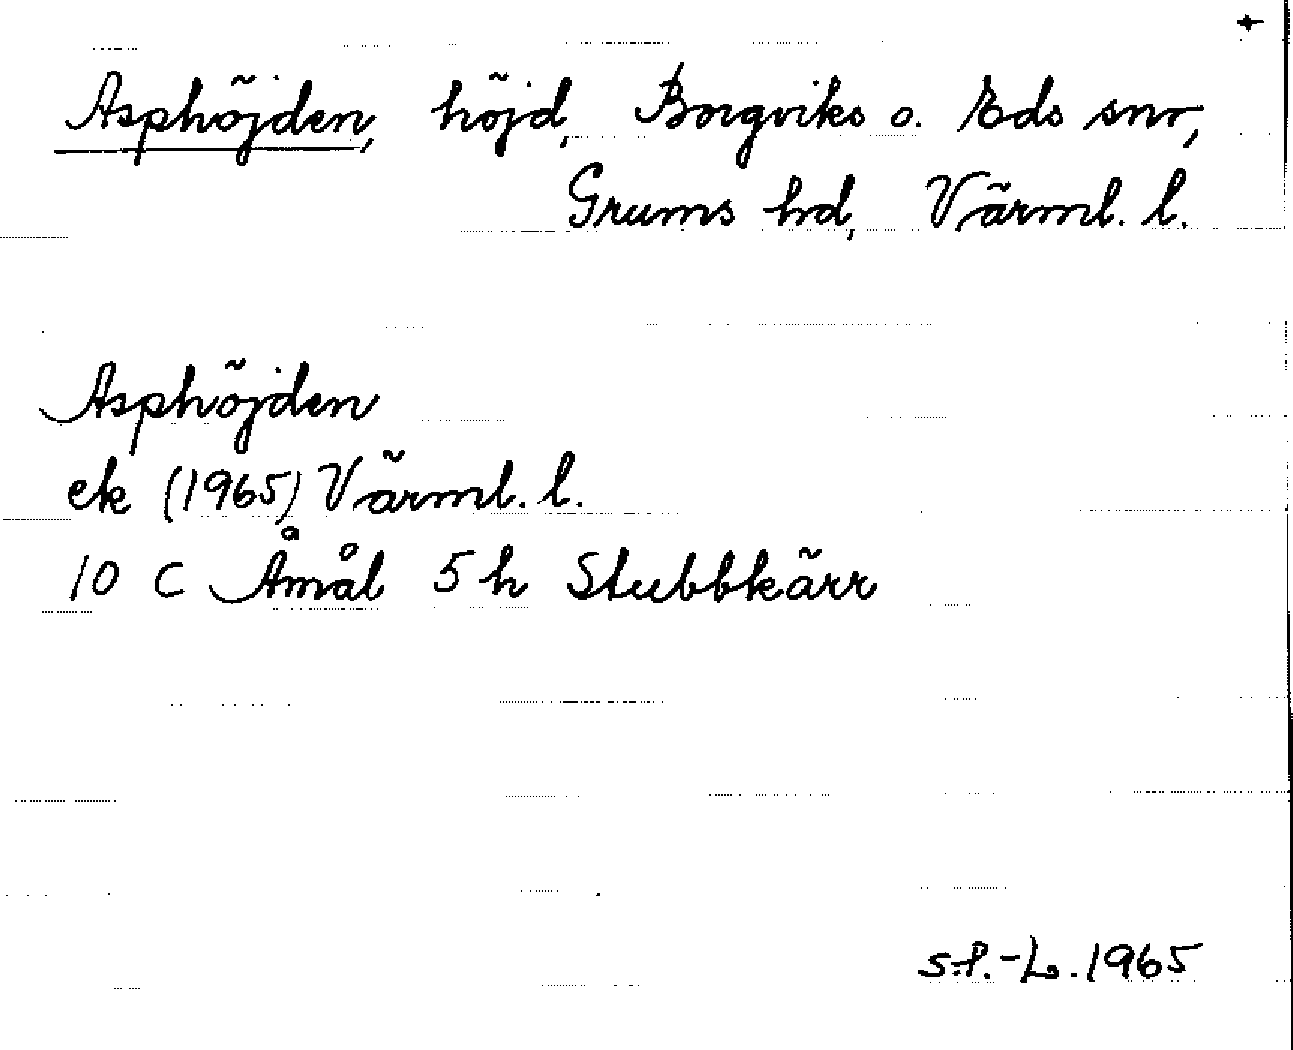 Asphöjden, höjd, Borgviks o. Eds snr,
Grums hd, Värml. l.
Asphöjden
ek (1965) Värml. l.
10 C Åmål 5 h Stubbkärr
S.P.-L. 1965